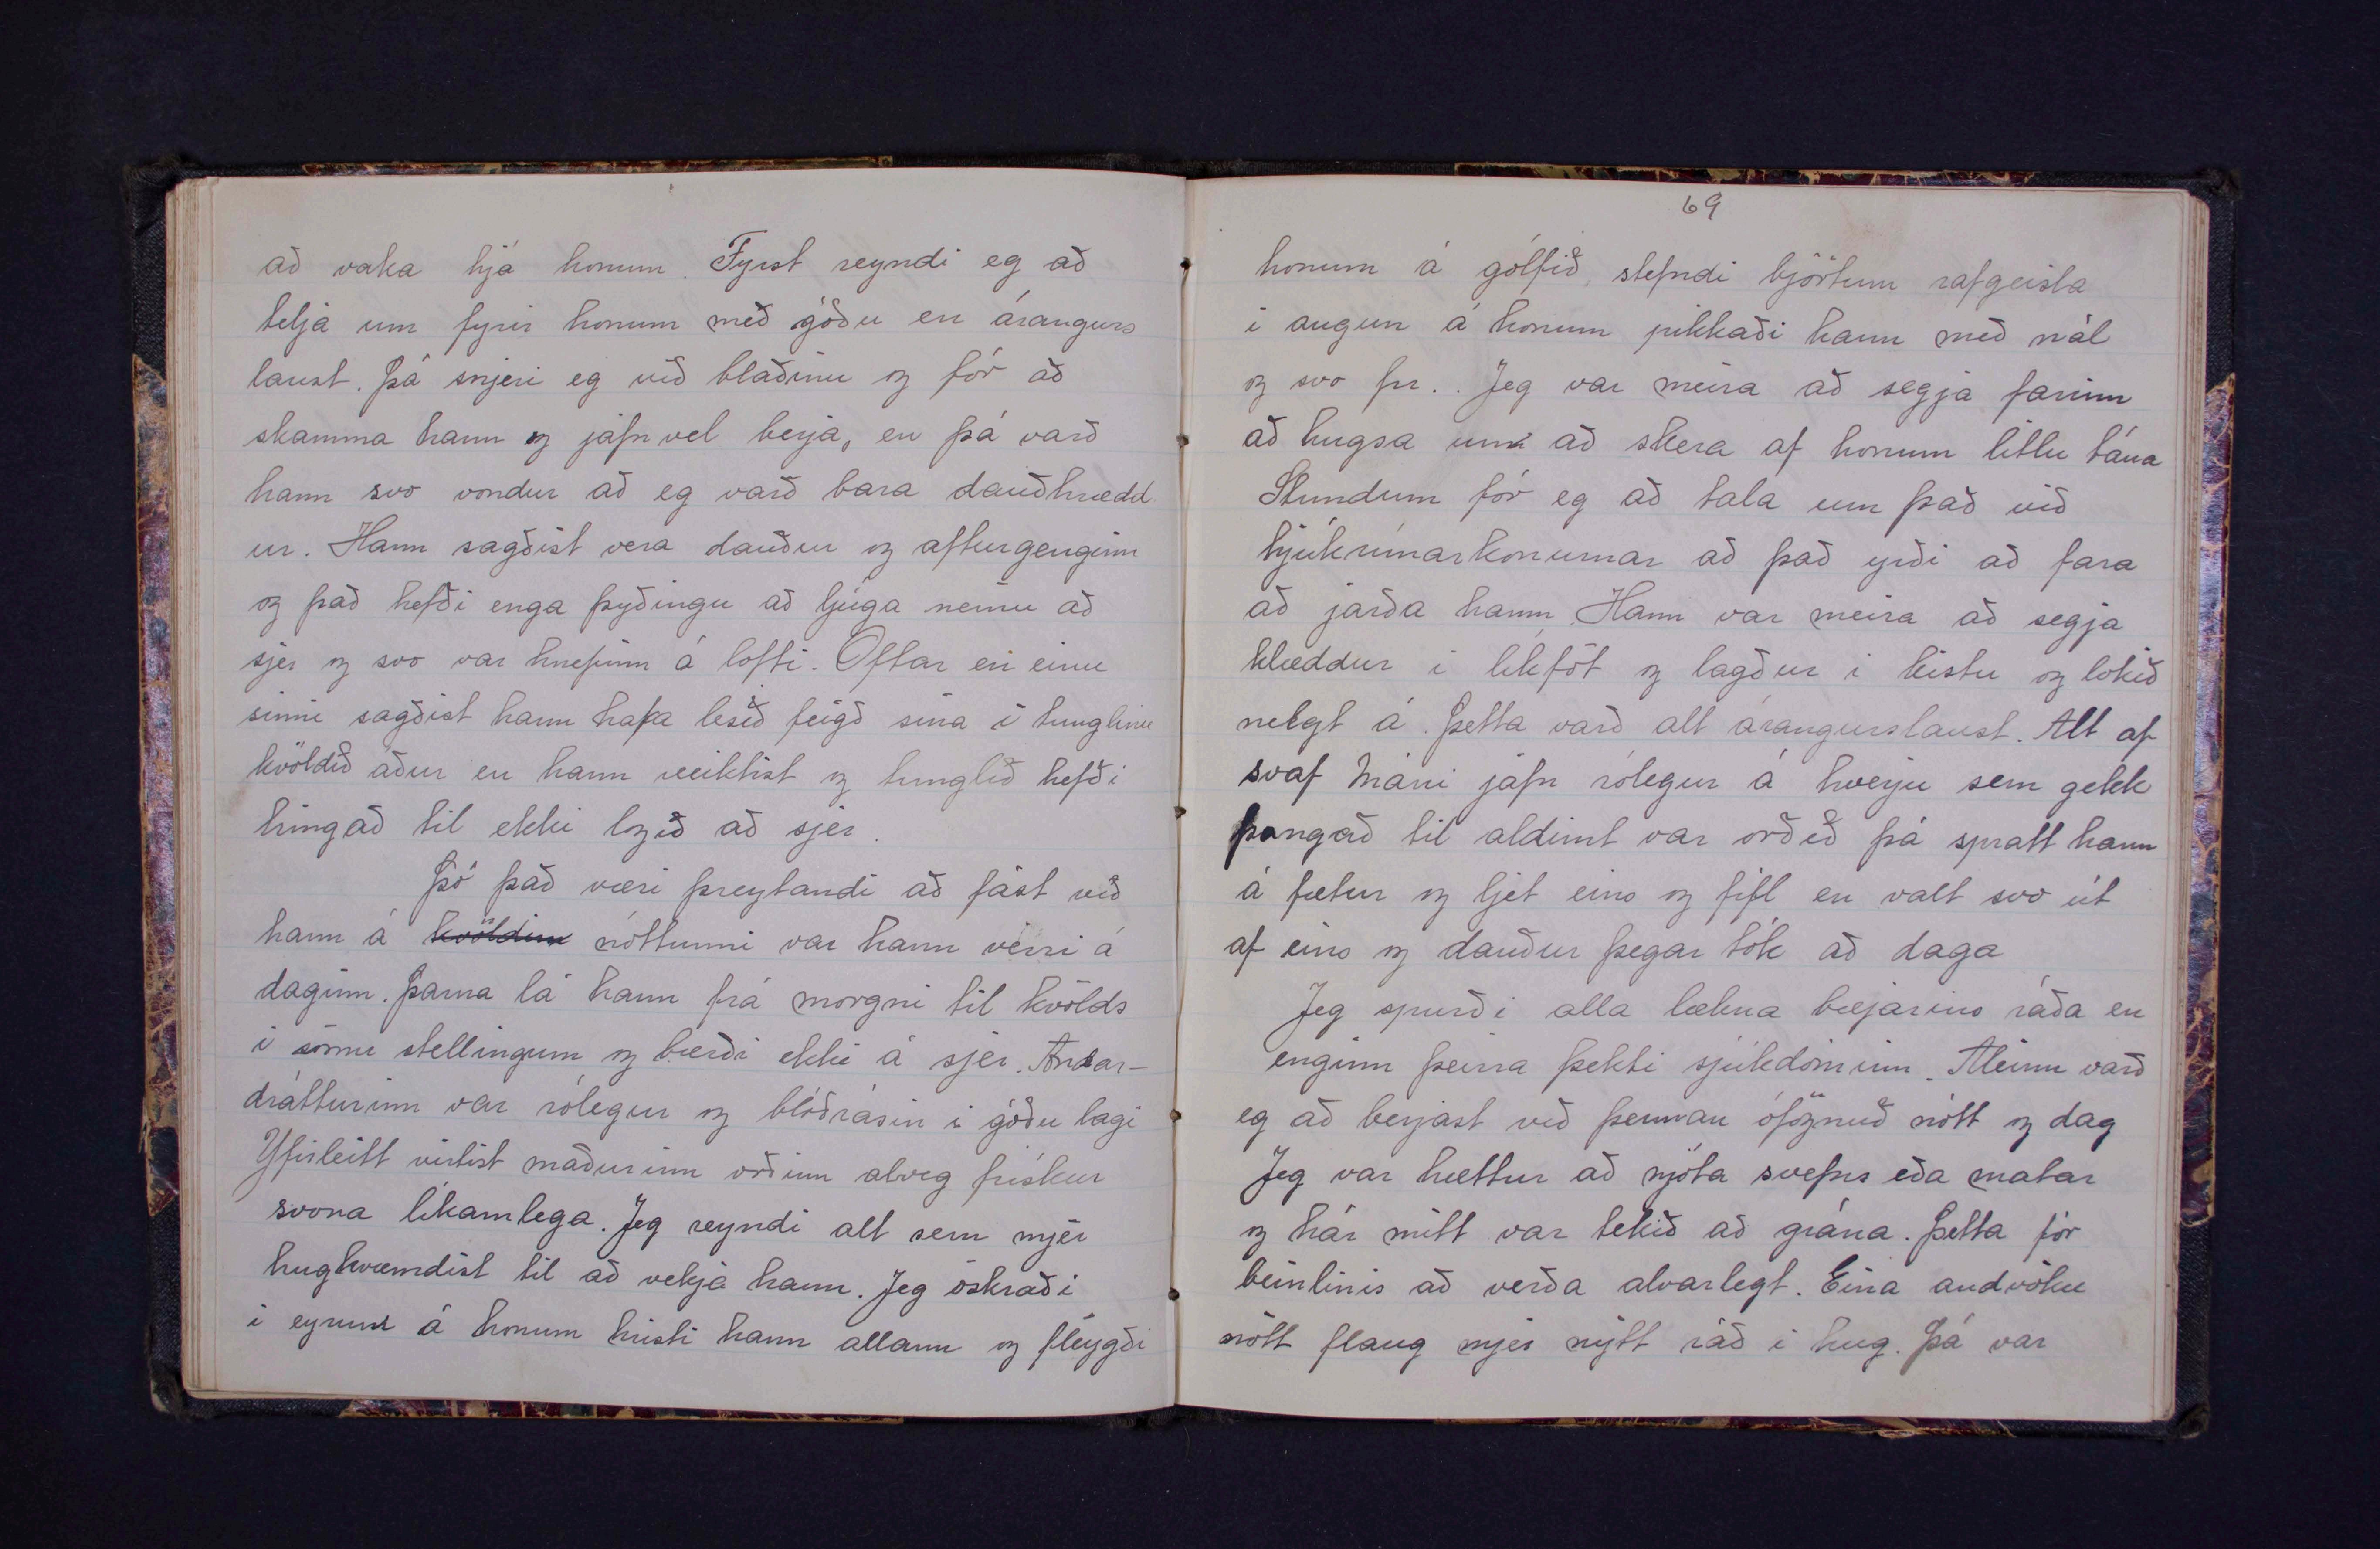 að vaka hjá honum. Fyrst reyndi eg að
telja um fyrir honum með góðu en árangurs
laust. Þá snjeri eg við blaðinu og fór að
skamma hann og jafnvel berja, en þá varð
hann svo vondur að eg varð bara dauðhrædd
ur. Hann sagðist vera dauður og afturgenginn
og það hefði enga þyðingu að ljúga neinu að
sjer og svo var hnefinn á lofti. Oftar en einu
sinni sagðist hann hafa lesið feigð sína í tunglinu
kvöldið áður en hann veiktist og tunglið hefði
hingað til ekki logið að sjer.
Þó það væri þreytandi að fást við
hann á kvöldin nóttunni var hann verri á
daginn. Þarna lá hann frá morgni til kvölds
í sömu stellingum og bærði ekki á sjer. Andar-
drátturinn var rólegur og blóðrásin i góðu lagi
Yfirleitt virtist maðurinn orðinn alveg frískur
svona líkamlega. Jeg reyndi alt sem mjer
hugkvæmdist til að vekja hann. Jeg öskraði
i eyrun á honum hristi hann allann og fleygði
69
honum á gólfið, stefndi björtum rafgeisla
i augun á honum pikkaði hann með nál
og svo fr.. Jeg var meira að segja farinn
að hugsa um að skera af honum litlu tána
Stundum fór eg að tala um það við
hjúkrúnarkonurnar að það yrði að fara
að jarða hann. Hann var meira að segja
klæddur i líkföt og lagður i kistu og lokið
neglt á. Þetta varð alt árangurslaust. Alt af
svaf Máni jafn rólegur á hverju sem gekk
þangað til aldimt var orðið þá spratt hann
á fætur og ljet eins og fífl en valt svo út
af eins og dauður þegar tók að daga
Jeg spurði alla lækna bæjarins ráða en
enginn þeirra þekti sjúkdóminn. Aleinn varð
eg að berjast við þennan ófögnuð nótt og dag
Jeg var hættur að njóta svefns eða matar
og hár mitt var tekið að grána. Þetta fór
beinlinis að verða alvarlegt. Eina andvöku
nótt flaug mjer nýtt ráð i hug. Þá var